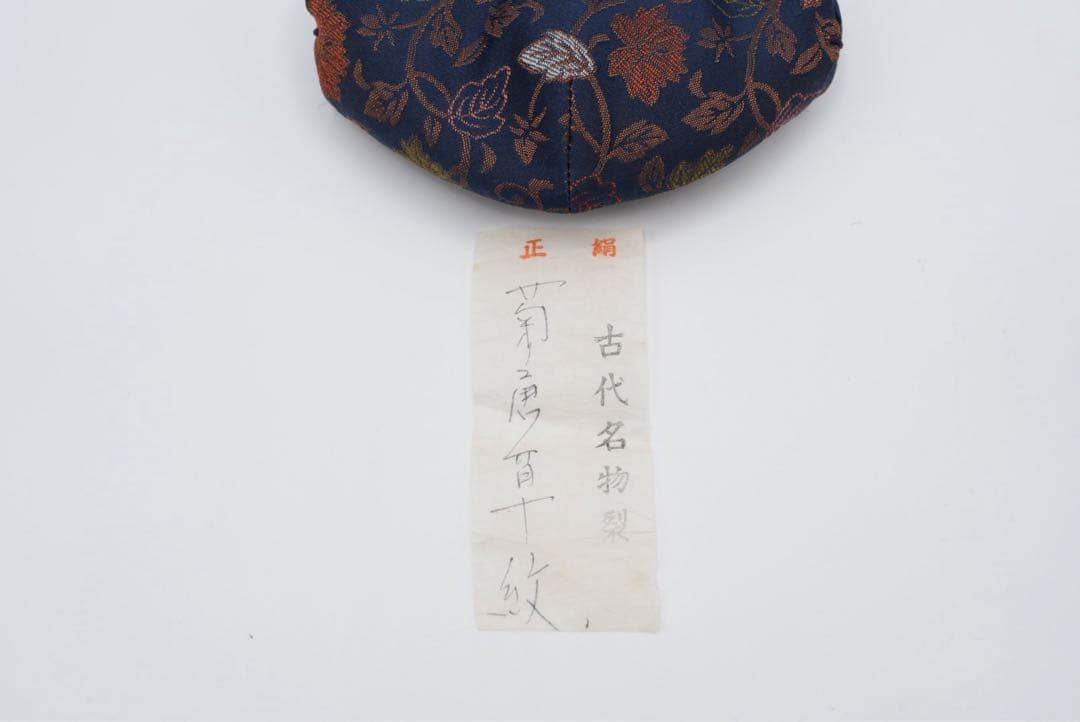 正絹
古代名物裂
菊唐草紋